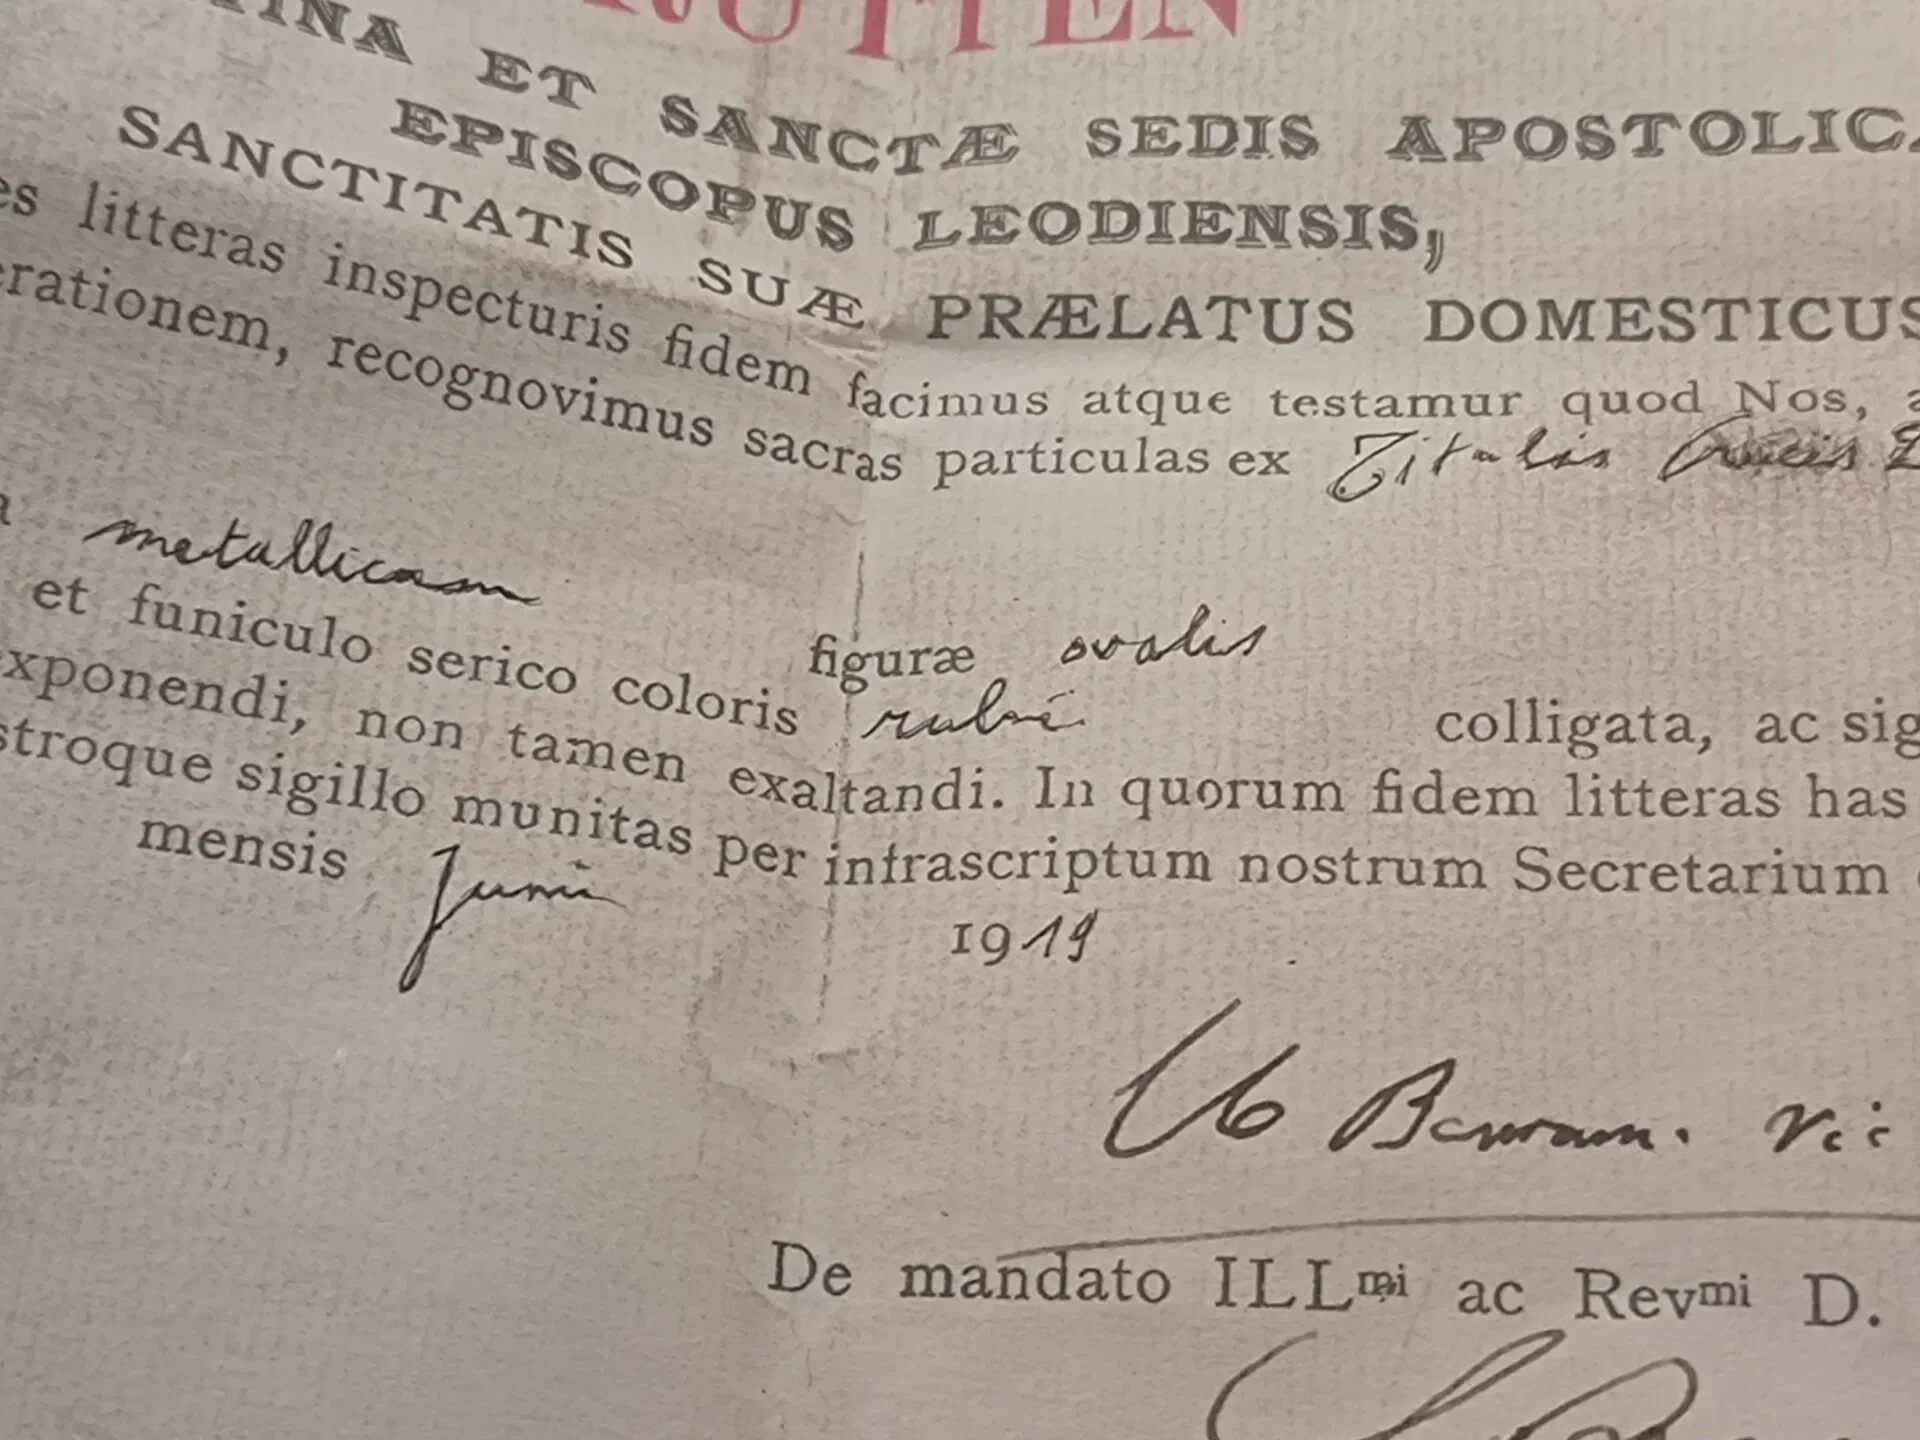 RUTTEN
INA ET SANCTÆ SEDIS APOSTOLICA
EPISCOPUS LEODIENSIS,
SANCTITATIS SUÆ PRÆLATUS DOMESTICUS
es litteras inspecturis fidem facimus atque testamur quod Nos, a
erationem, recognovimus sacras particulas ex Tituli Crucis
metallicam figuræ ovalis
et funiculo serico coloris rubri colligata, ac sig
xponendi, non tamen exaltandi. In quorum fidem litteras has
stroque sigillo munitas per infrascriptum nostrum Secretarium
mensis Junii 1919
vic
De mandato ILLmi ac Revmi D.